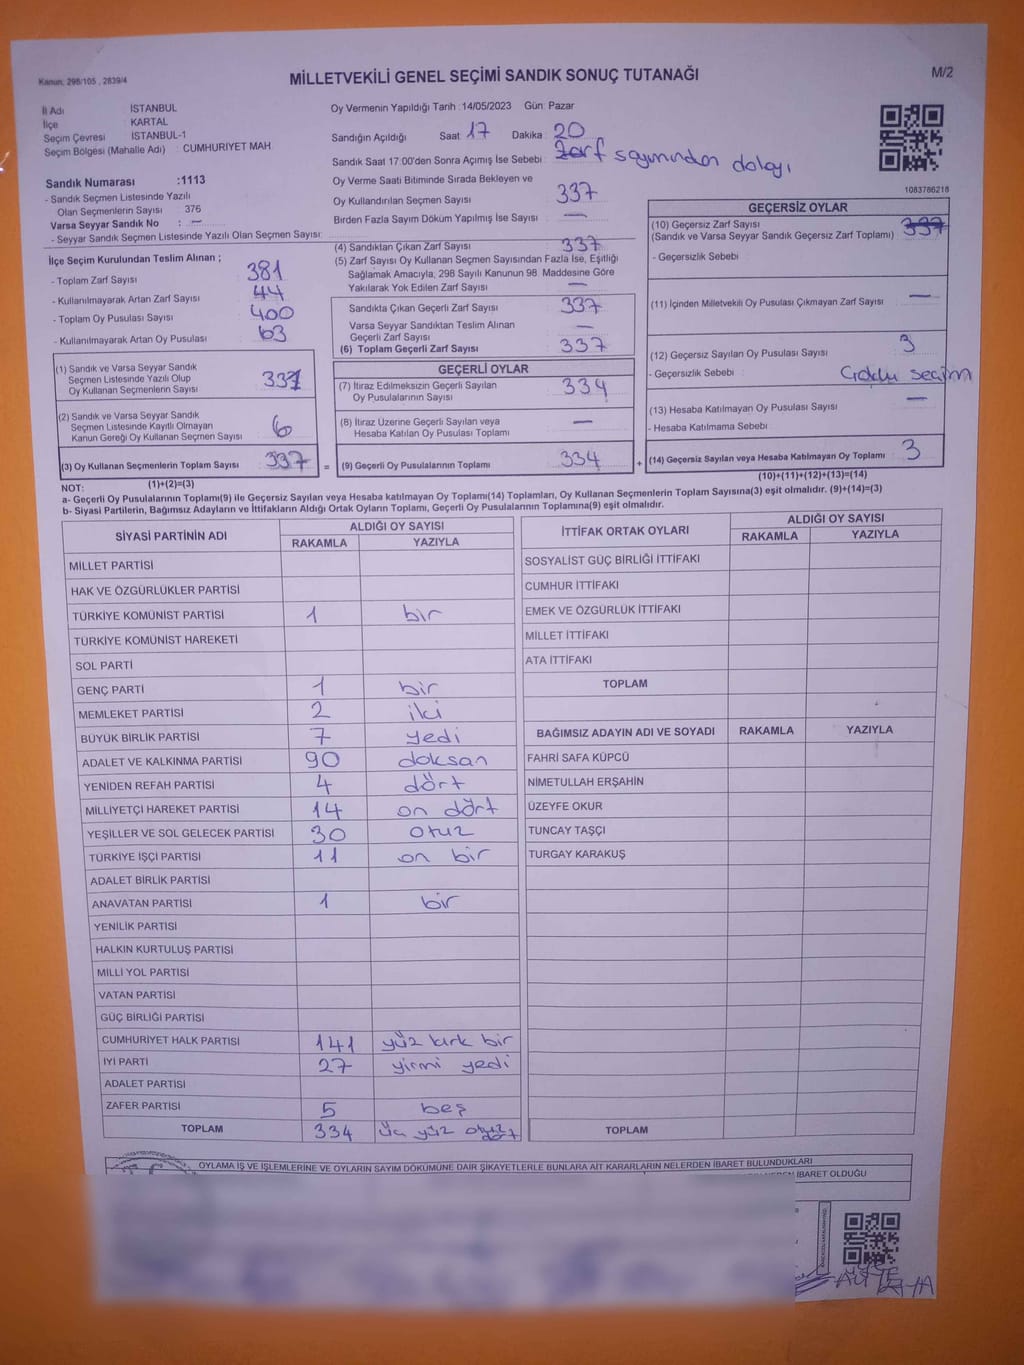 Kanun, 298/105 , 2839/4
MİLLETVEKİLİ GENEL SEÇİMİ SANDIK SONUÇ TUTANAĞI
M/2
İl Adı İSTANBUL
İlçe KARTAL
Seçim Çevresi İSTANBUL-1
Seçim Bölgesi (Mahalle Adı) : CUMHURİYET MAH
Sandık Numarası :1113
- Sandık Seçmen Listesinde Yazılı
Olan Seçmenlerin Sayısı : 376
Varsa Seyyar Sandık No : —
- Seyyar Sandık Seçmen Listesinde Yazılı Olan Seçmen Sayısı:
Oy Vermenin Yapıldığı Tarih : 14/05/2023 Gün: Pazar
Sandığın Açıldığı Saat 17 Dakika : 20
Sandık Saat 17:00'den Sonra Açımış İse Sebebi : Zarf sayımından dolayı
Oy Verme Saati Bitiminde Sırada Bekleyen ve
Oy Kullandırılan Seçmen Sayısı : 337
Birden Fazla Sayım Döküm Yapılmış İse Sayısı : —
1083786218
İlçe Seçim Kurulundan Teslim Alınan ;
- Toplam Zarf Sayısı : 381
- Kullanılmayarak Artan Zarf Sayısı : 44
- Toplam Oy Pusulası Sayısı : 400
- Kullanılmayarak Artan Oy Pusulası : 63
(1) Sandık ve Varsa Seyyar Sandık
Seçmen Listesinde Yazılı Olup
Oy Kullanan Seçmenlerin Sayısı
(2) Sandık ve Varsa Seyyar Sandık
Seçmen Listesinde Kayıtlı Olmayan
Kanun Gereği Oy Kullanan Seçmen Sayısı 6
(3) Oy Kullanan Seçmenlerin Toplam Sayısı 337
(1)+(2)=(3)
(4) Sandıktan Çıkan Zarf Sayısı : 337
(5) Zarf Sayısı Oy Kullanan Seçmen Sayısından Fazla İse, Eşitliği
Sağlamak Amacıyla, 298 Sayılı Kanunun 98. Maddesine Göre
Yakılarak Yok Edilen Zarf Sayısı : —
Sandıkta Çıkan Geçerli Zarf Sayısı : 337
Varsa Seyyar Sandıktan Teslim Alınan
Geçerli Zarf Sayısı : —
(6) Toplam Geçerli Zarf Sayısı : 337
GEÇERLİ OYLAR
(7) İtiraz Edilmeksizin Geçerli Sayılan
Oy Pusulalarının Sayısı : 334
(8) İtiraz Üzerine Geçerli Sayılan veya
Hesaba Katılan Oy Pusulası Toplamı : —
= (9) Geçerli Oy Pusulalarının Toplamı 334
GEÇERSİZ OYLAR
(10) Geçersiz Zarf Sayısı : 337
(Sandık ve Varsa Seyyar Sandık Geçersiz Zarf Toplamı)
- Geçersizlik Sebebi :
(11) İçinden Milletvekili Oy Pusulası Çıkmayan Zarf Sayısı : —
(12) Geçersiz Sayılan Oy Pusulası Sayısı : 3
- Geçersizlik Sebebi : Çoklu seçim
(13) Hesaba Katılmayan Oy Pusulası Sayısı : —
- Hesaba Katılmama Sebebi :
+ (14) Geçersiz Sayılan veya Hesaba Katılmayan Oy Toplamı : 3
(10)+(11)+(12)+(13)=(14)
NOT:
a- Geçerli Oy Pusulalarının Toplamı(9) ile Geçersiz Sayılan veya Hesaba katılmayan Oy Toplamı(14) Toplamları, Oy Kullanan Seçmenlerin Toplam Sayısına(3) eşit olmalıdır. (9)+(14)=(3)
b- Siyasi Partilerin, Bağımsız Adayların ve İttifakların Aldığı Ortak Oyların Toplamı, Geçerli Oy Pusulalarının Toplamına(9) eşit olmalıdır.
SİYASİ PARTİNİN ADI ALDIĞI OY SAYISI
RAKAMLA YAZIYLA
MİLLET PARTİSİ
HAK VE ÖZGÜRLÜKLER PARTİSİ
TÜRKİYE KOMÜNİST PARTİSİ 1 bir
TÜRKİYE KOMÜNİST HAREKETİ
SOL PARTİ
GENÇ PARTİ 1 bir
MEMLEKET PARTİSİ 2 iki
BÜYÜK BİRLİK PARTİSİ 7 yedi
ADALET VE KALKINMA PARTİSİ 90 doksan
YENİDEN REFAH PARTİSİ 4 dört
MİLLİYETÇİ HAREKET PARTİSİ 14 on dört
YEŞİLLER VE SOL GELECEK PARTİSİ 30 otuz
TÜRKİYE İŞÇİ PARTİSİ 11 on bir
ADALET BİRLİK PARTİSİ
ANAVATAN PARTİSİ 1 bir
YENİLİK PARTİSİ
HALKIN KURTULUŞ PARTİSİ
MİLLİ YOL PARTİSİ
VATAN PARTİSİ
GÜÇ BİRLİĞİ PARTİSİ
CUMHURİYET HALK PARTİSİ 141 yüz kırk bir
İYİ PARTİ 27 yirmi yedi
ADALET PARTİSİ
ZAFER PARTİSİ 5 beş
TOPLAM 334 üç yüz otuz dört
İTTİFAK ORTAK OYLARI ALDIĞI OY SAYISI
RAKAMLA YAZIYLA
SOSYALİST GÜÇ BİRLİĞİ İTTİFAKI
CUMHUR İTTİFAKI
EMEK VE ÖZGÜRLÜK İTTİFAKI
MİLLET İTTİFAKI
ATA İTTİFAKI
TOPLAM
BAĞIMSIZ ADAYIN ADI VE SOYADI RAKAMLA YAZIYLA
FAHRİ SAFA KÜPCÜ
NİMETULLAH ERŞAHİN
ÜZEYFE OKUR
TUNCAY TAŞÇI
TURGAY KARAKUŞ
TOPLAM
OYLAMA İŞ VE İŞLEMLERİNE VE OYLARIN SAYIM DÖKÜMÜNE DAİR ŞİKAYETLERLE BUNLARA AİT KARARLARIN NELERDEN İBARET BULUNDUKLARI
İBARET OLDUĞU